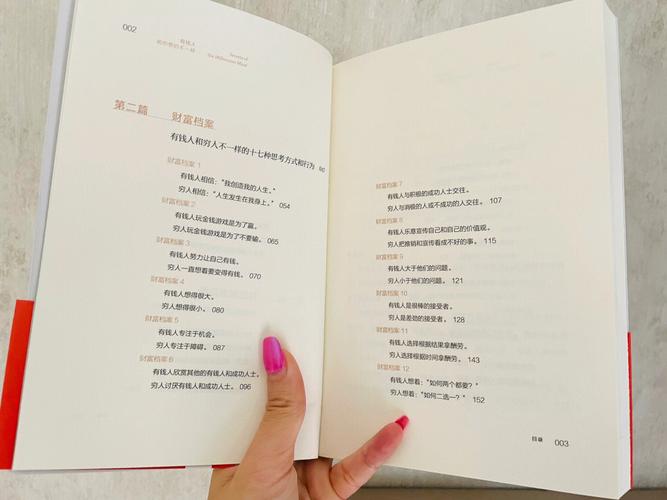 002
有钱人
和你想的不一样
Secrets of
the Millionaire Mind
第二篇 财富档案
有钱人和穷人不一样的十七种思考方式和行为
财富档案 1
有钱人相信：“我创造我的人生。”
穷人相信：“人生发生在我身上。” 054
财富档案 2
有钱人玩金钱游戏是为了赢。
穷人玩金钱游戏是为了不要输。 065
财富档案 3
有钱人努力让自己有钱。
穷人一直想着要变得有钱。 070
财富档案 4
有钱人想得很大。
穷人想得很小。 080
财富档案 5
有钱人专注于机会。
穷人专注于障碍。 087
财富档案 6
有钱人欣赏其他的有钱人和成功人士。
穷人讨厌有钱人和成功人士。 096
财富档案 7
有钱人与积极的成功人士交往。
穷人与消极的人或不成功的人交往。 107
财富档案 8
有钱人乐意宣传自己和自己的价值观。
穷人把推销和宣传看成不好的事。 115
财富档案 9
有钱人大于他们的问题。
穷人小于他们的问题。 121
财富档案 10
有钱人是很棒的接受者。
穷人是差劲的接受者。 128
财富档案 11
有钱人选择根据结果拿酬劳。
穷人选择根据时间拿酬劳。 143
财富档案 12
有钱人想着：“如何两个都要？”
穷人想着：“如何二选一？” 152
目录 003